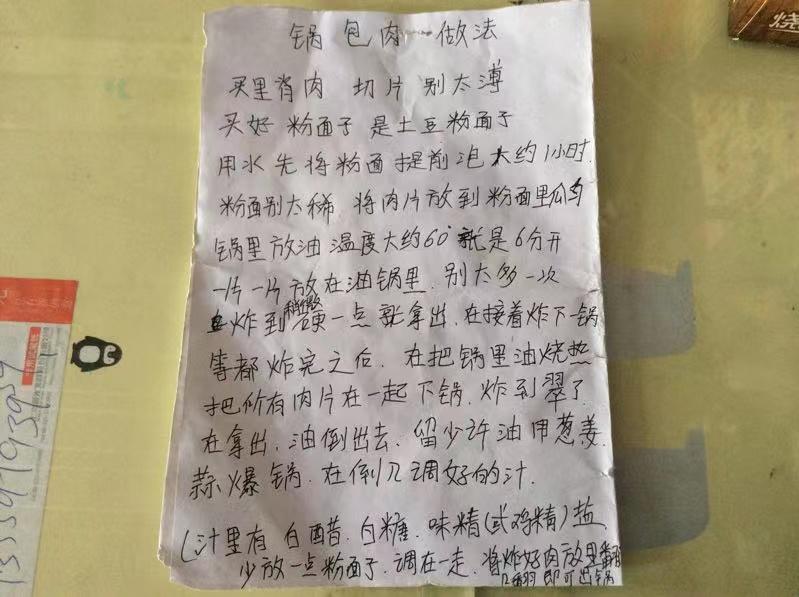 锅包肉一做法
买里脊肉 切片 别太薄
买好 粉面子 是土豆粉面子
用水先将粉面提前泡大约1小时.
粉面别太稀 将肉片放到粉面里抓匀
锅里放油温度大约60°就是6分开
一片一片放在油锅里.别太多一次
炸到稍微硬一点就拿出.在接着炸下一锅
等都炸完之后.在把锅里油烧热
把所有肉片在一起下锅.炸到翠了
在拿出.油倒出去.留少许油用葱姜
蒜爆锅.在倒入调好的汁.
(汁里有 白醋.白糖.味精(或鸡精)盐
少放一点粉面子.调在一走.将炸好肉放里翻
几翻即可出锅
烧